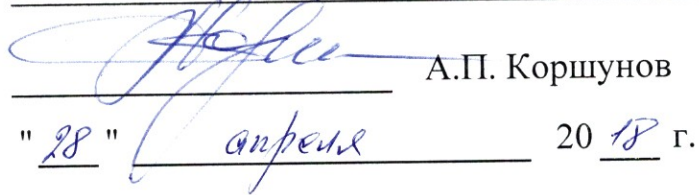 А.П. Коршунов
" 28 " апреля 20 18 г.